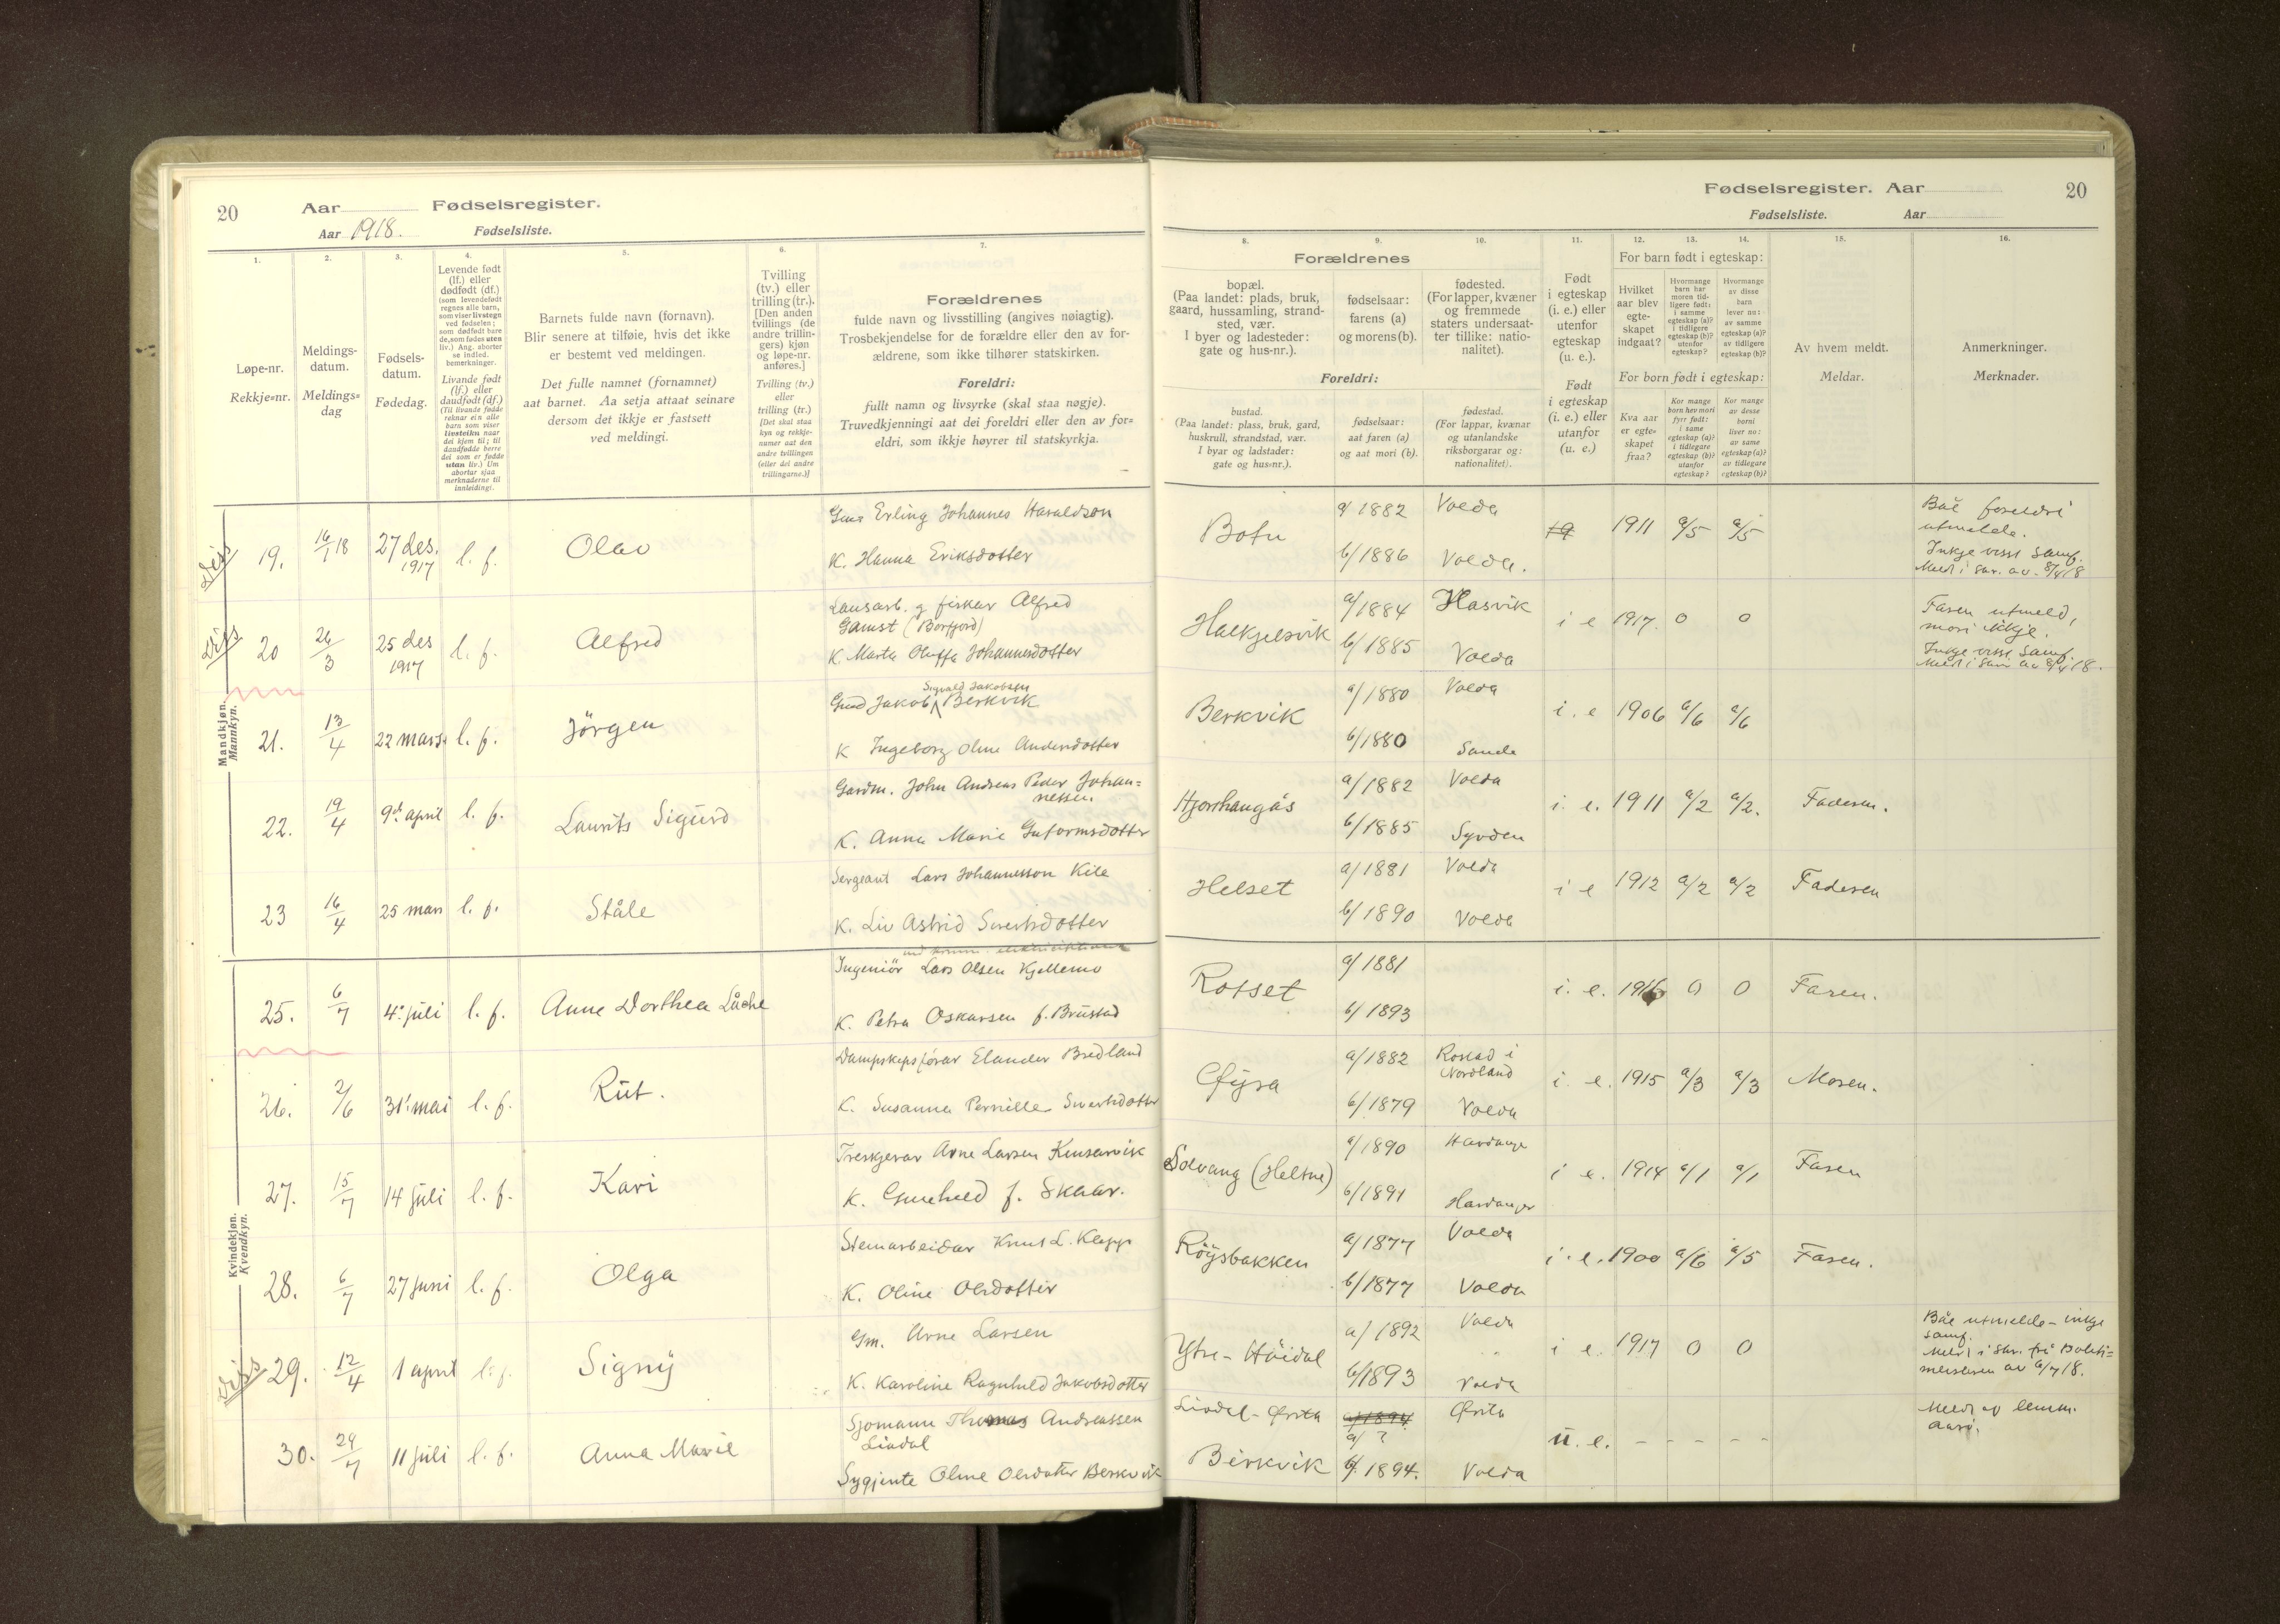 20
Aar
Fødselsregister.
Aar 1918.
Fødselsliste.
1.
2.
3.
4.
5.
6.
7.
Løpe-nr.
Rekkje=nr.
Meldings-
datum.
Meldings=
dag
Fødsels-
datum.
Fødedag.
Levende født
(lf.) eller
dødfødt (df.)
(som levendefødt
regnes alle barn,
som viser livstegn
ved fødselen;
som dødfødt bare
de, som fødes uten
liv.) Ang. aborter
se indled.
bemerkninger.
Livande født
(lf.) eller
daudfødt (df.)
(Til livande fødde
reknar ein alle
barn som viser
livsteikn naar
dei kjem til; til
daudfødde berre
dei som er fødde
utan liv.) Um
abortar sjaa
merknaderne til
innleidingi.
Barnets fulde navn (fornavn).
Blir senere at tilføie, hvis det ikke
er bestemt ved meldingen.
Det fulle namnet (fornamnet)
aat barnet. Aa setja attaat seinare
dersom det ikkje er fastsett
ved meldingi.
Tvilling
(tv.) eller
trilling (tr.).
[Den anden
tvillings (de
andre trillin-
gers) kjøn
og løpe-nr.
anføres.]
Tvilling (tv.)
eller
trilling (tr.)
[Det skal staa
kyn og rekkje-
numer aat den
andre tvillingen
(eller dei andre
trillingarne.)]
Forældrenes
fulde navn og livsstilling (angives nøiagtig).
Trosbekjendelse for de forældre eller den av for-
ældrene, som ikke tilhører statskirken.
Foreldri:
fullt namn og livsyrke (skal staa nøgje).
Truvedkjenningi aat dei foreldri eller den av for=
eldri, som ikkje høyrer til statskyrkja.
Mandkjøn.
Mannkyn.
Diss 19. 16/1 18 27 des. 1917 l. f. Olav
Erling Johannes Haraldson
K. Hanna Eriksdotter
Diss 20 26/3 25 des 1917 l. f. Alfred
Lausarb. g fiskar Alfred
Gamst (Borfjord)
K. Marta Oluffa Johannesdotter
21. 13/4 22 mars. l. f. Jörgen
Sigvald Jakobsen
Jakob Berkvik
K Ingeborg Oline Andersdotter
22. 19/4 9d. april l. f. Laurits Sigurd
Gardm. John Andreas Peder Johan=
nessen
K. Anna Marie Gutormsdotter
23 16/4 25 mars l. f. Ståle
Sergeant Lars Johannesson Kile
K. Liv Astrid Sivertsdotter
Kvindekjøn.
Kvendkyn.
25. 6/7 4. juli l. f. Anne Dorthea
Ingeniör Lars Olsen Kjellemo
K. Petra Oskarsen f. Brustad
26. 2/6 31. mai l. f. Rut.
Dampskipsförar Elander Bredland
K. Susanna Pernille Sivertsdotter
27. 15/7 14 juli l. f. Kari
Treskjerar Arne Larsen Kinsarvik
K. Gunhild f. Skaar.
28. 6/7 27 juni l. f. Olga
Steinarbeidar Knut L. Klepp
K. Oline Olsdotter
Diss 29. 12/4 1 april l. f. Signy
Gm. Arne Larsen
K. Karoline Ragnhild Jakobsdotter
30. 29/7 11 juli l. f. Anna Marie
Sjomann Thomas Andreassen
Liadal
Sygjente Oline Olsdotter Berkvik
Fødselsregister. Aar
20
Fødselsliste.
Aar
8.
9.
10.
11.
12.
13.
14.
15.
16.
Forældrenes
bopæl.
(Paa landet: plads, bruk,
gaard, hussamling, strand-
sted, vær.
I byer og ladesteder:
gate og hus-nr.).
fødselsaar:
farens (a)
og morens (b).
fødested.
(For lapper, kvæner
og fremmede
staters undersaat-
ter tillike: natio-
nalitet).
Foreldri:
bustad.
(Paa landet: plass, bruk, gard,
huskrull, strandstad, vær.
I byar og ladstader:
gate og hus=nr.).
fødselsaar:
aat faren (a)
og aat mori (b).
fødestad.
(For lappar, kvænar
og utanlandske
riksborgarar og:
nationalitet).
Født
i egteskap
(i. e.) eller
utenfor
egteskap
(u. e.).
Født
i egteskap
(i. e.) eller
utanfor
(u. e.)
For barn født i egteskap:
Hvilket
aar blev
egte-
skapet
indgaat?
Hvormange
barn har
moren tid-
ligere født:
i samme
egteskap (a)?
i tidligere
egteskap (b)?
utenfor
egteskap?
Hvormange
av disse
barn
lever nu:
av samme
egteskap (a)?
av tidligere
egteskap (b)?
For born født i egteskap:
Kva aar
er egte-
skapet
fraa?
Kor mange
born hev mori
fyrr født:
i same
egteskap (a)?
i tidlegare
egteskap (b)?
utanfor
egteskap?
Kor mange
av desse
borni
liver no:
av same
egteskap (a)?
av tidlegare
egteskap (b)?
Av hvem meldt.
Meldar.
Anmerkninger.
Merknader.
Botn a/ 1882 Volda 1911 a/5 a/5
b/ 1886 Volda.
Båe foreldri
utmelde.
Inkje visst samf.
Meld i skr. av 8/4 18
Halkjelsvik a/ 1884 Hasvik i e 1917. 0 0
b/ 1885 Volda
Faren utmeld,
mori ikkje.
Inkje visst samf.
Meld i skr. av 8/4 18.
Berkvik a/ 1880 Volda i. e 1906 a/6 a/6
b/ 1880 Sande
Hjorthaugås a/ 1882 Volda i. e. 1911 a/2 a/2. Faderen.
b/ 1885 Syvden
Helset a/ 1881 Volda i e 1912 a/2 a/2 Faderen
b/ 1890 Volda
Rotset a/ 1881 i. e. 1916 0 0 Faren.
b/ 1893
Øyra a/ 1882 i. e. 1915 a/3 a/3 Moren.
Nordland
b/ 1879 Volda
Solvang (Heltne) a/ 1890 Hardanger i e. 1914 a/1 a/1 Faren
b/ 1891 Hardanger
Röysbakken a/ 1877 Volda i. e. 1900 a/6 a/5 Faren.
b/ 1877 Volda
Ytre-Höidal a/ 1892 Volda i e. 1917 0 0
b/ 1893 Volda
Båe utmelde - inkje
samf.
Meld i skr. frå politi=
meisteren av 6/7 18.
Liadal - Ørsta a/ 1894 Ørsta
a/ ?
u. e. - - - - -
Birkvik b/ 1894. Volda
Meld av